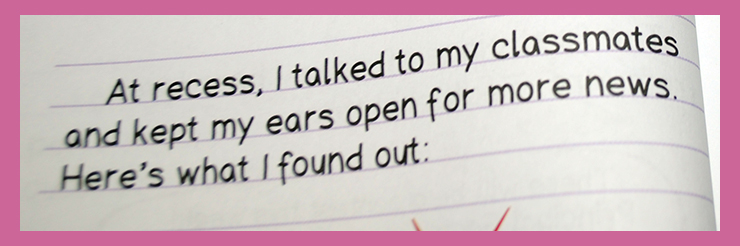 At recess, I talked to my classmates
and kept my ears open for more news.
Here's what I found out: